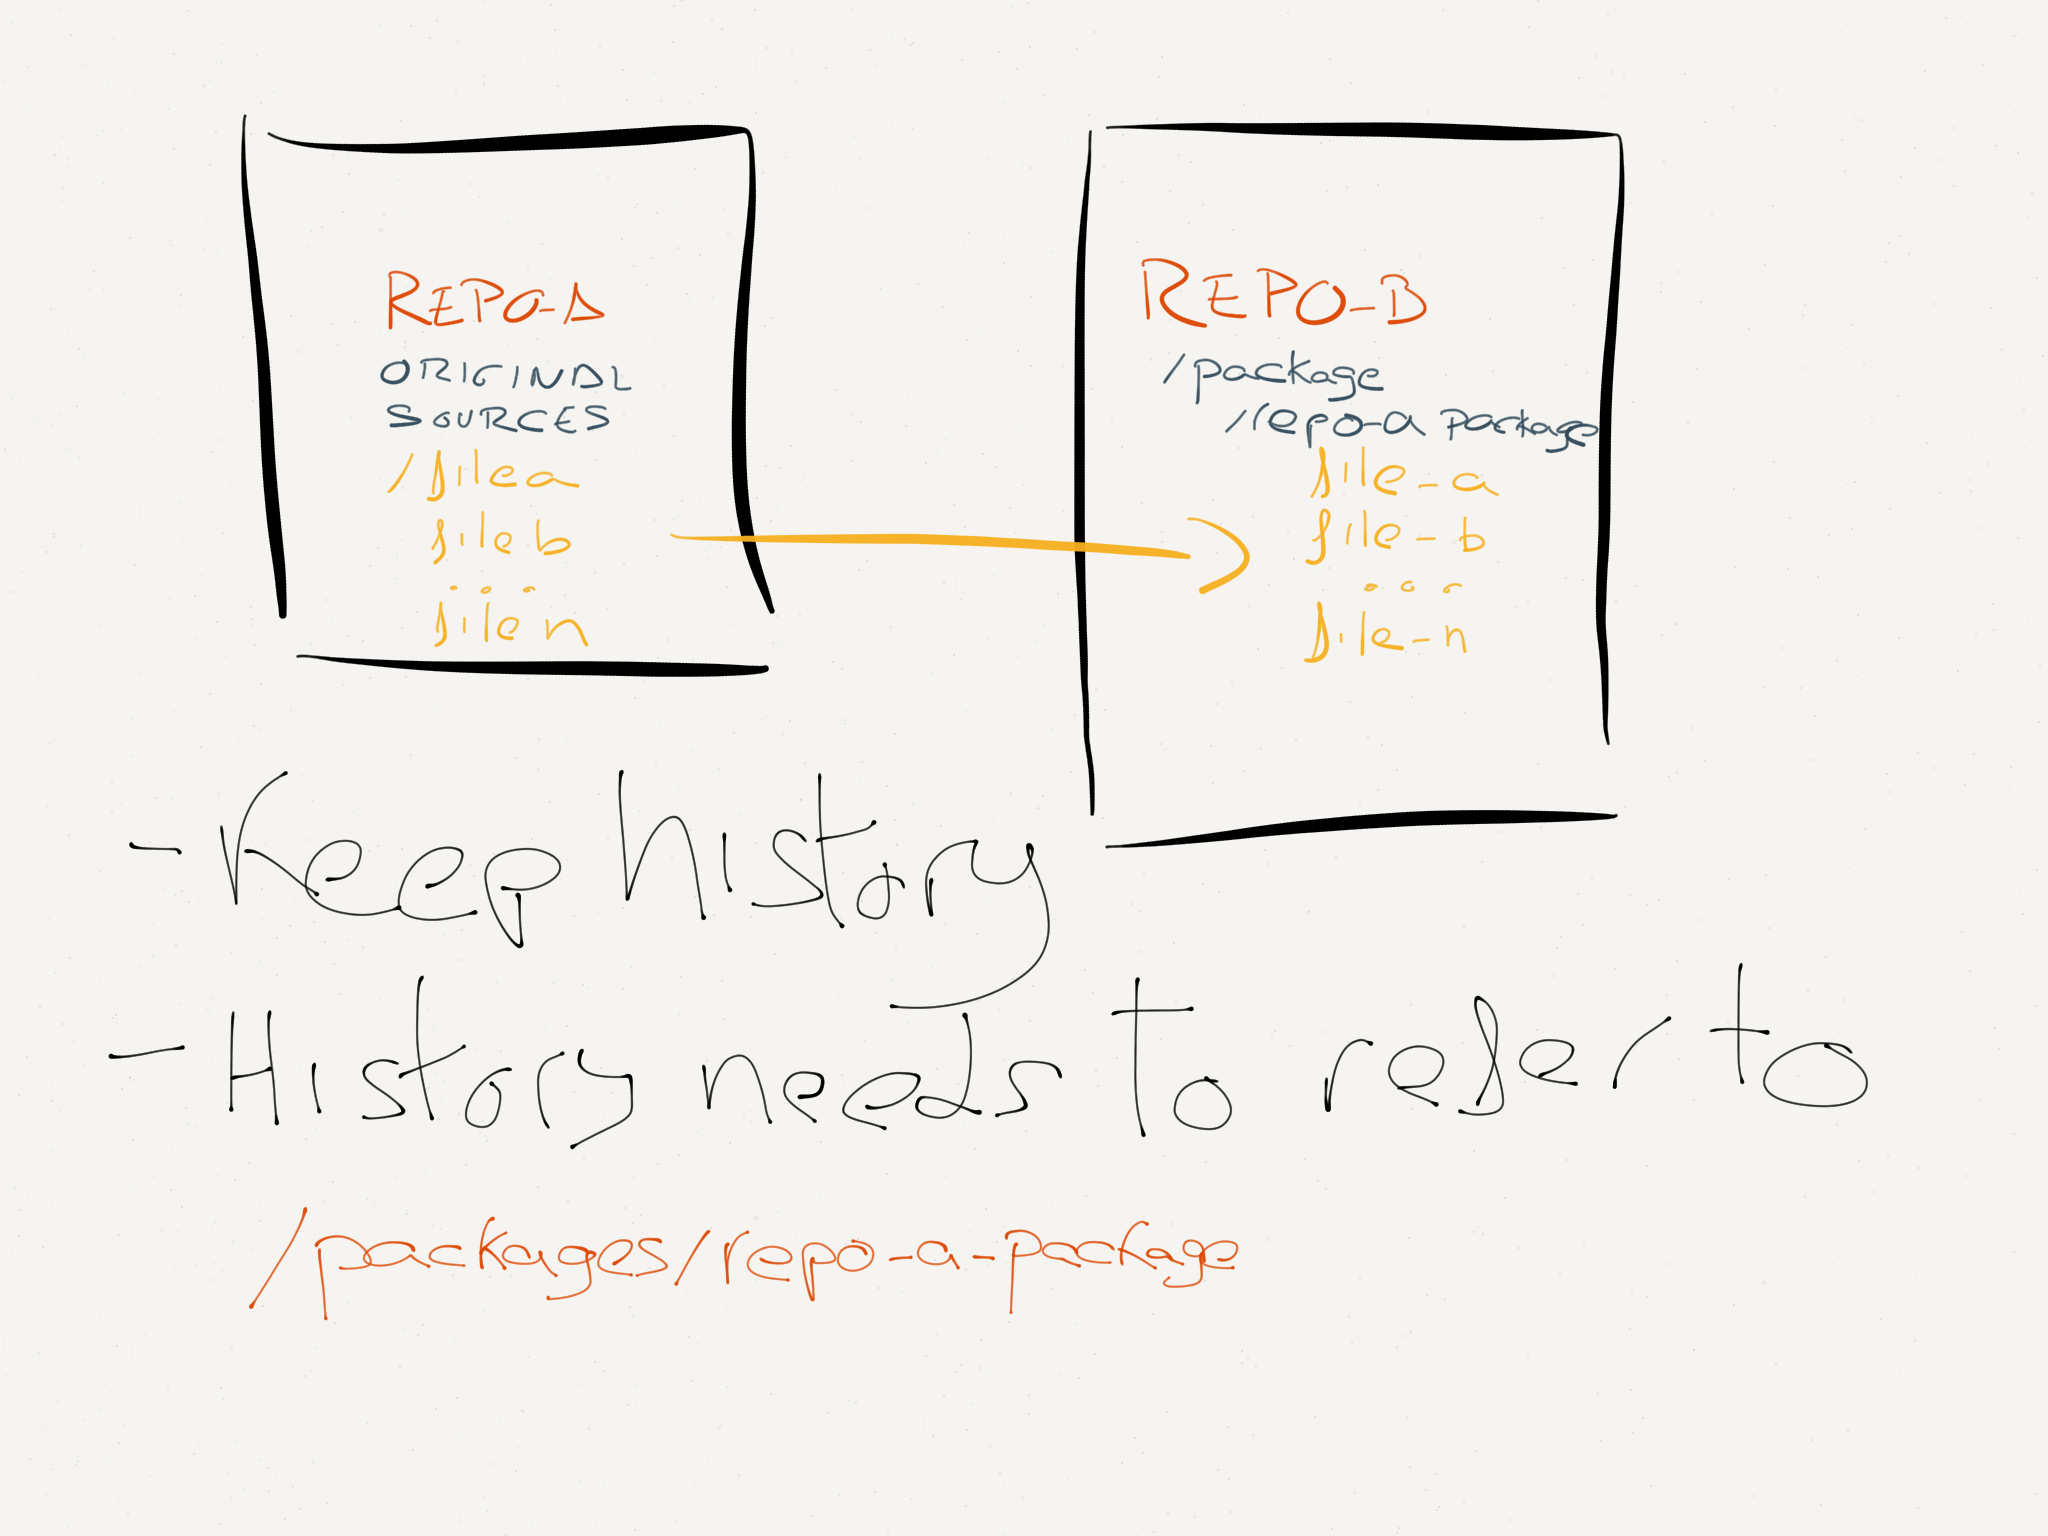 REPO-A
ORIGINAL
SOURCES
/filea
fileb
...
filen
REPO-B
/package
/repo-a package
file-a
file-b
...
file-n
- Keep history
- History needs to refer to
/packages/repo-a-package